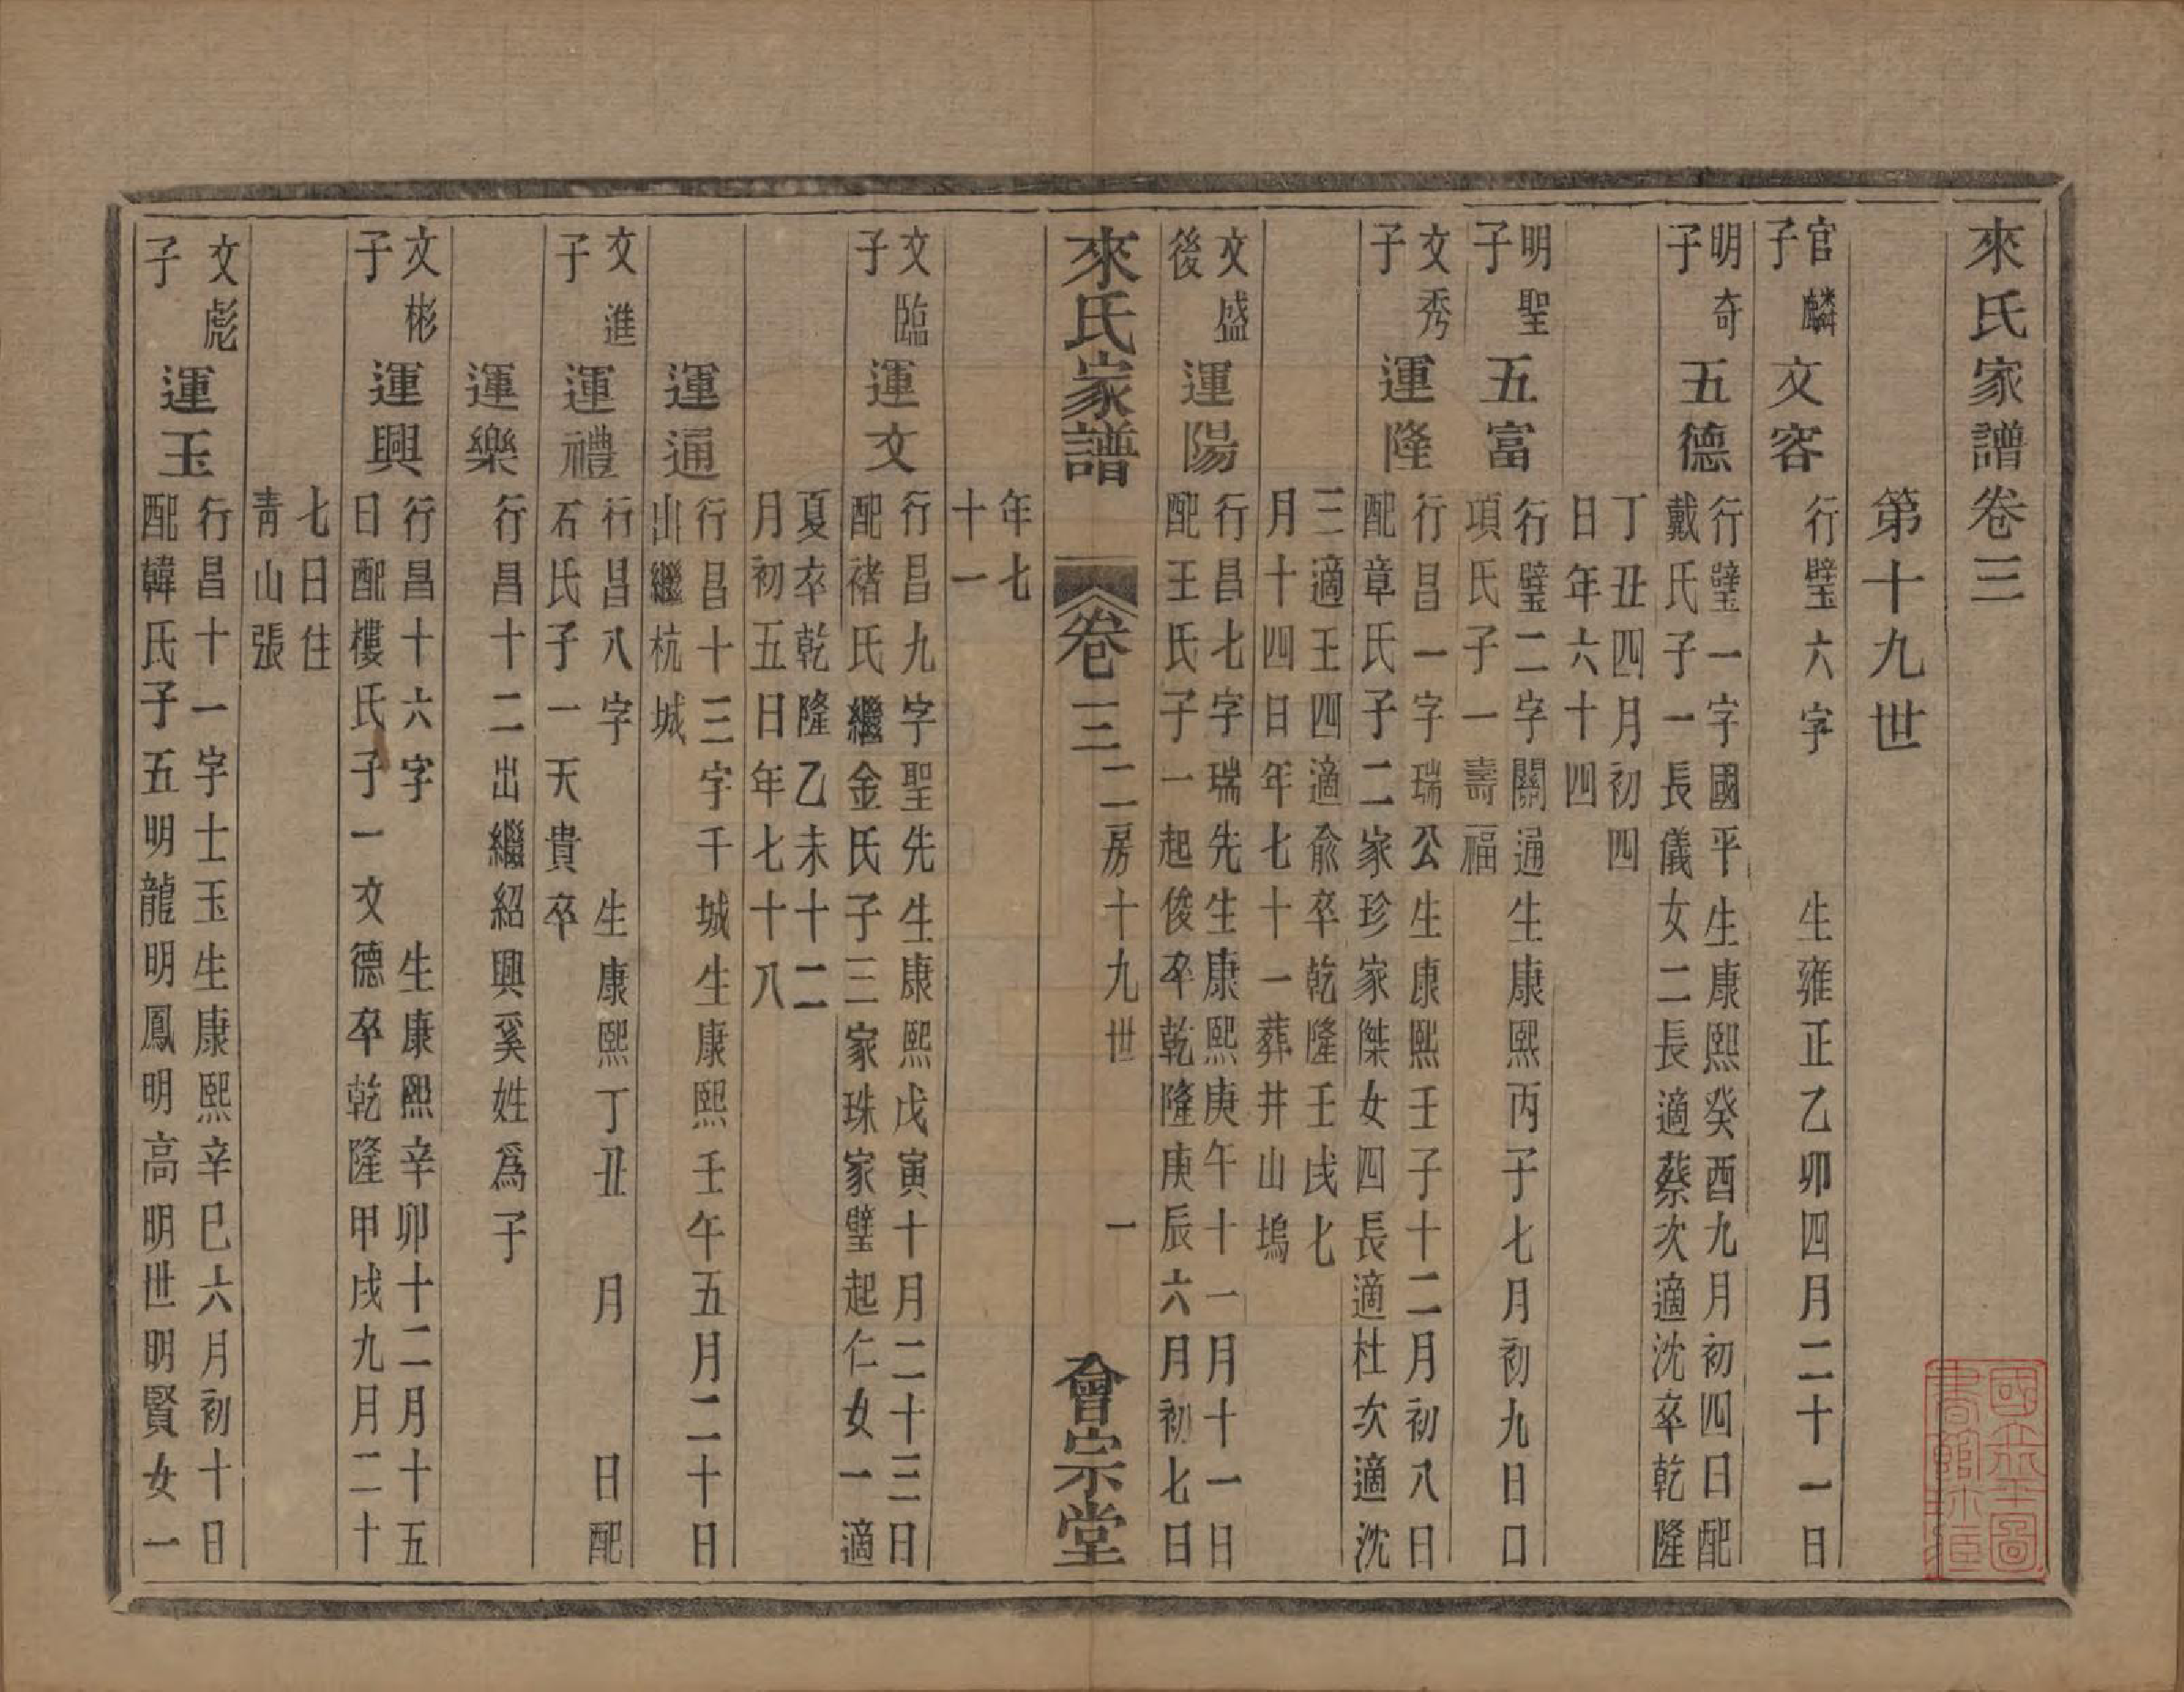 來氏家譜卷三
第十九世
官麟
子
文容
行璧六字　　生雍正乙卯四月二十一日
明奇
子
五德
行璧一字國平生康熙癸酉九月初四日配
戴氏子一長儀女二長適蔡次適沈卒乾隆
丁丑四月初四
日年六十四
明聖
子
五富
行璧二字關通生康熙丙子七月初九日口
項氏子一壽福
文秀
子
運隆
行昌一字瑞公生康熙壬子十二月初八日
配章氏子二家珍家傑女四長適杜次適沈
三適王四適兪卒乾隆壬戌七
月十四日年七十一葬井山塢
文盛
後
運陽
行昌七字瑞先生康熙庚午十一月十一日
配王氏子一起俊卒乾隆庚辰六月初七日
來氏家譜　卷三　二房十九世　一　會宗堂
年七
十一
文臨
子
運文
行昌九字聖先生康熙戊寅十月二十三日
配褚氏繼金氏子三家珠家璧起仁女一適
夏卒乾隆乙未十二
月初五日年七十八
運通
行昌十三字千城生康熙壬午五月二十日
出繼杭城
文進
子
運禮
行昌八字　　生康熙丁丑　月　　日配
石氏子一天貴卒
運樂
行昌十二出繼紹興奚姓爲子
文彬
子
運興
行昌十六字　　生康熙辛卯十二月十五
日配樓氏子一文德卒乾隆甲戌九月二十
七日住
靑山張
文彪
子
運玉
行昌十一字士玉生康熙辛巳六月初十日
配韓氏子五明龍明鳳明高明世明賢女一